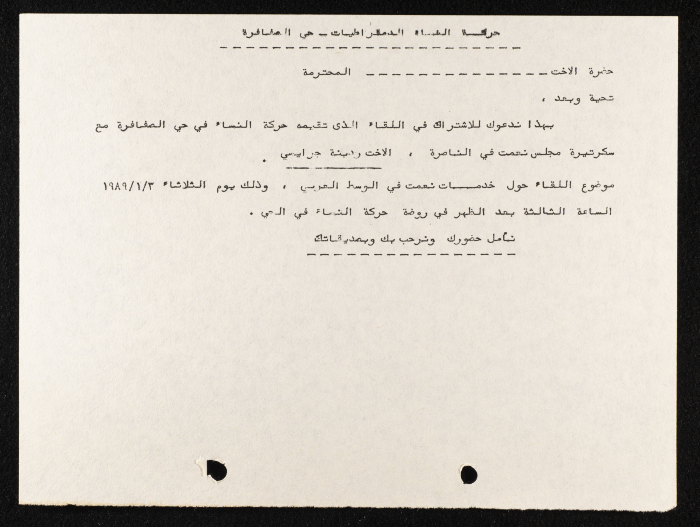 حركة النساء الديمقراطيات - حي الصفافرة
حضرة الاخت ــ ــ ــ ــ ــ ــ ــ ــ ــ ــ ــ ــ ــ المحترمة
تحية وبعد ،
بهذا ندعوك للاشتراك في اللقاء الذى تقيمه حركة النساء في حي الصفافرة مع
سكرتيرة مجلس نعمت في الناصرة ، الاخت جرايسي .
موضوع اللقاء حول خدمـــات نعمت في الوسط العربي ، وذلك يوم الثلاثاء ١٩٨٩/١/٣
الساعة الثالثة بعد الظهر في روضة حركة النساء في الحي .
نأمل حضورك ونرحب بك وبصديقاتك